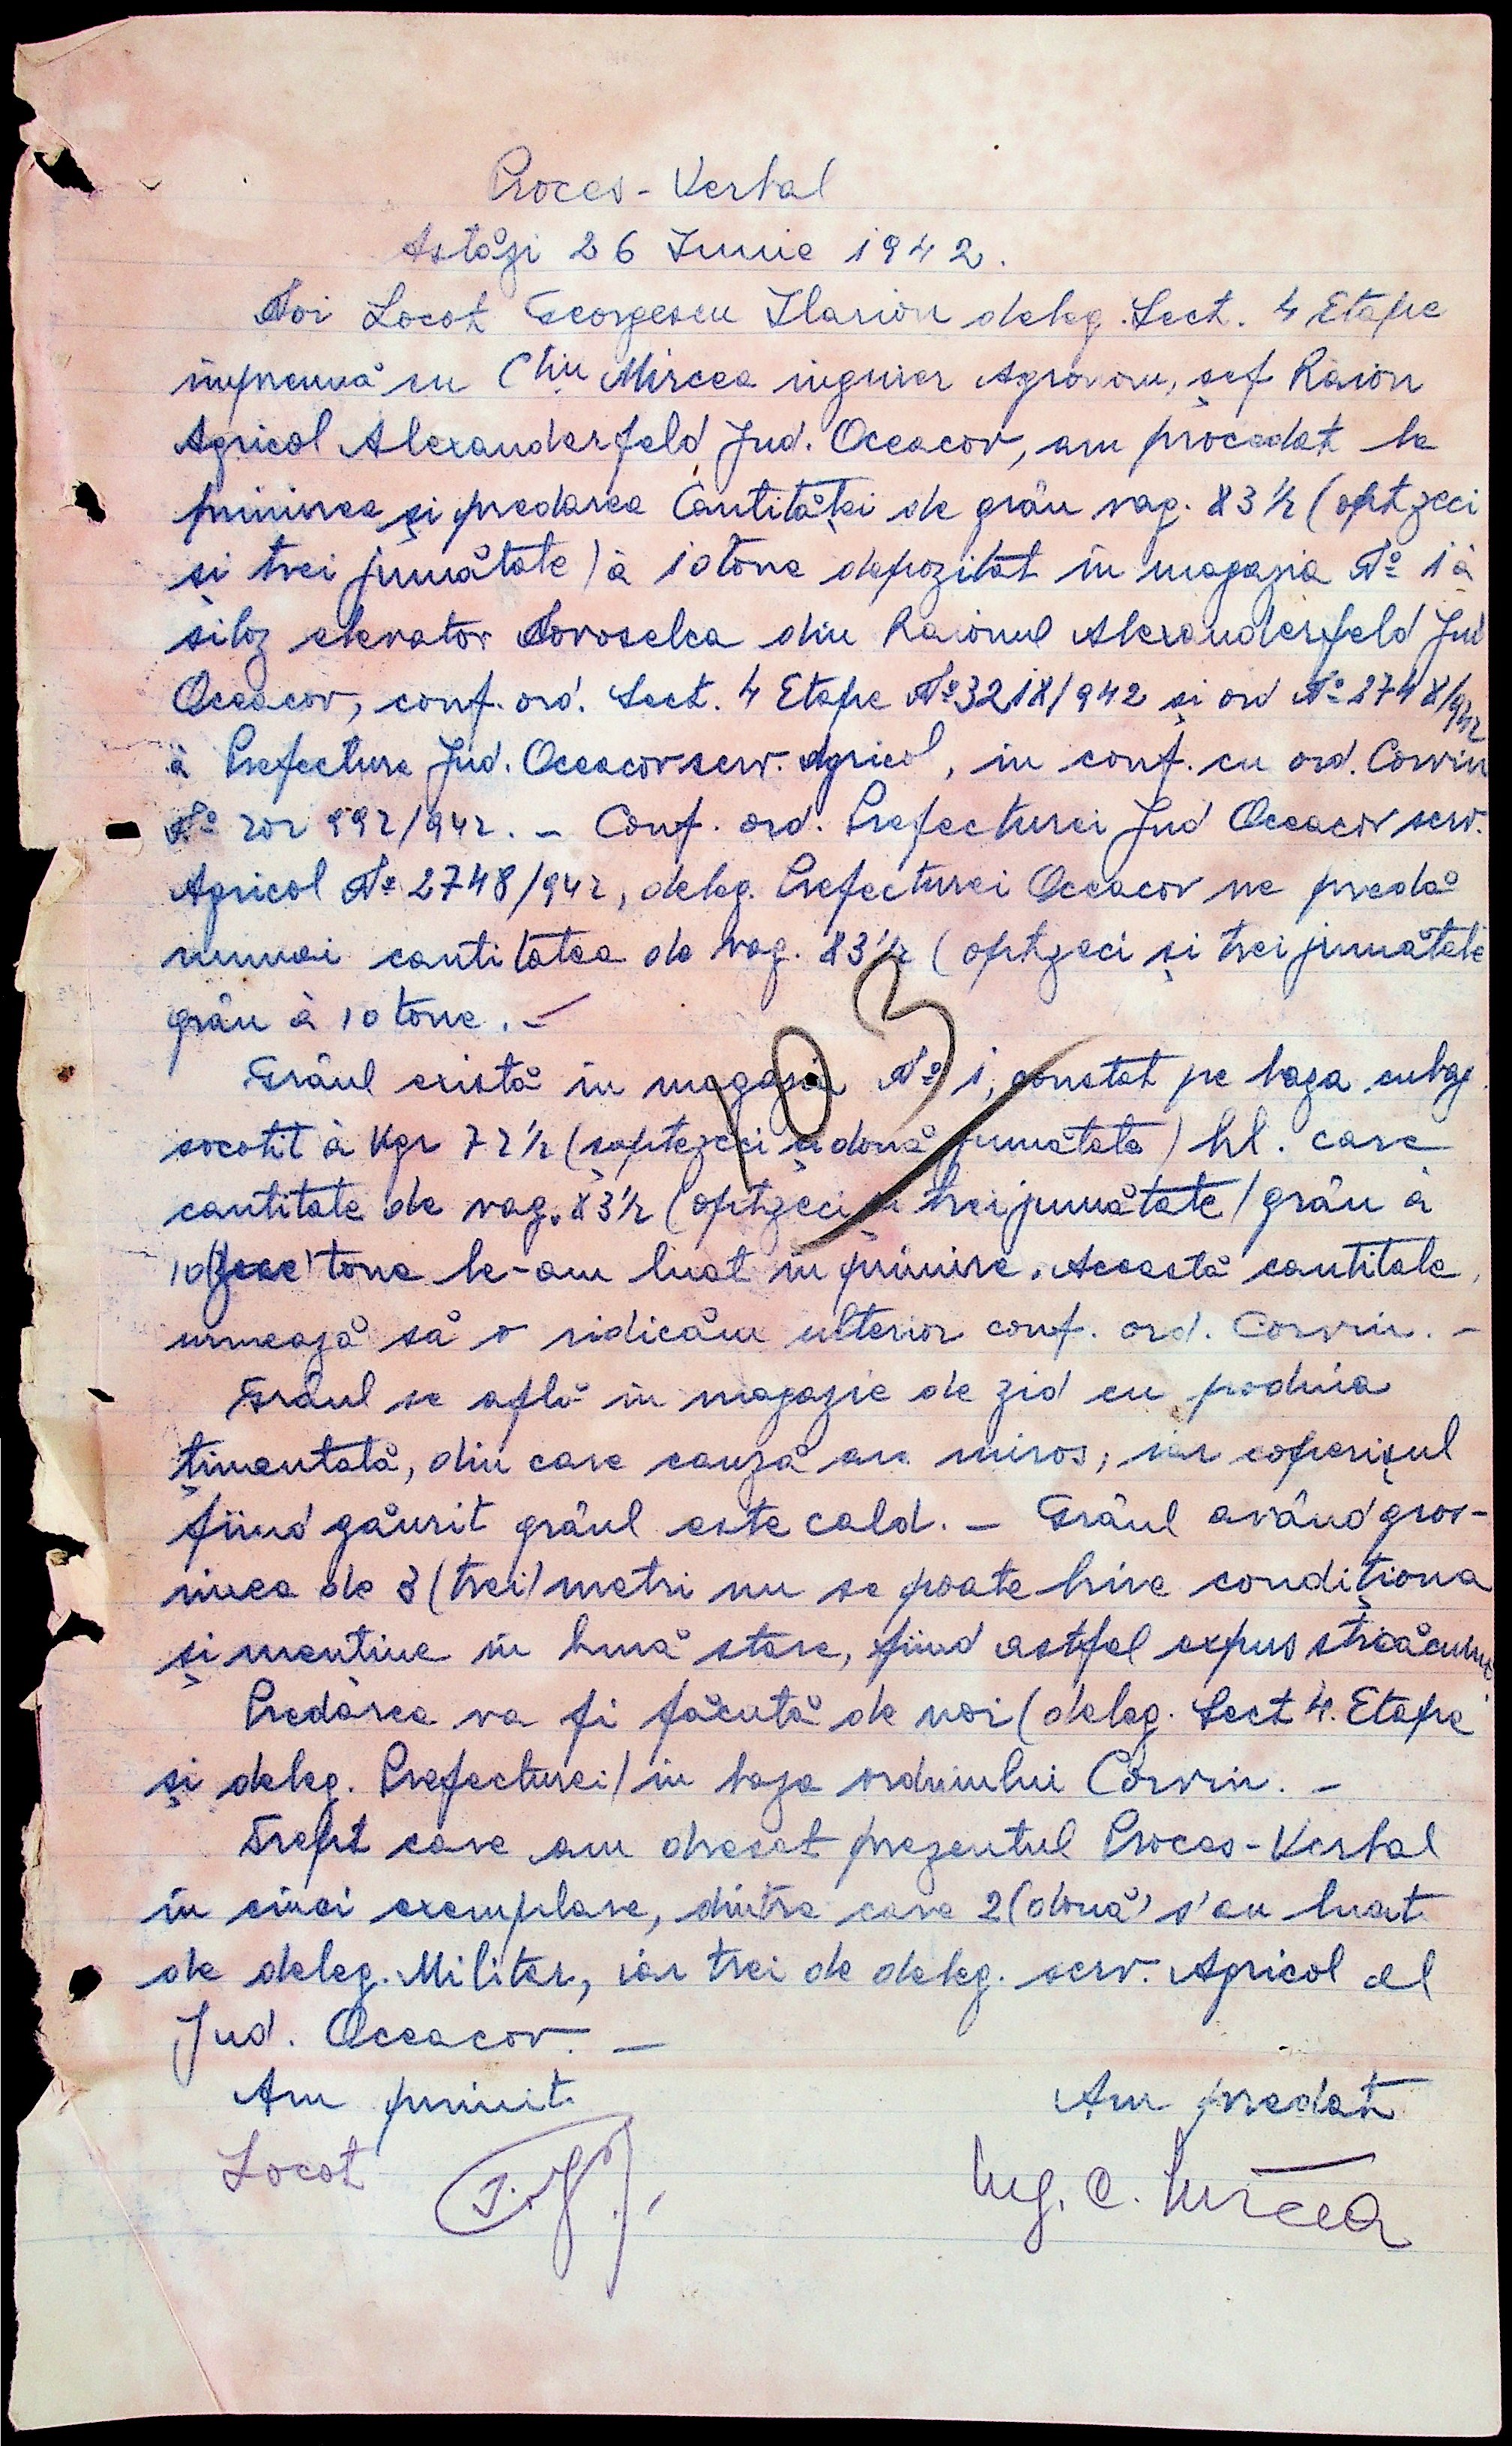 Proces-Verbal
Astăzi 26 Iunie 1942.
Noi Locot Georgescu Ilarion deleg. Sect. 4 Etape
împreună cu Chiu Mircea inginer Agronom, șef Raion
Agricol Alexanderfeld Jud. Oceacov, am procedat la
primirea și predarea Cantităței de grâu vag. 83½ (optzeci
și trei jumătate) à 10 tone depozitat în magazia No 1 a
siloz elevator Novoselca din Raionul Alexanderfeld Jud
Oceacov, conf. ord. Sect. 4 Etape No 3218/942 și ord No 2748/942
a Prefecture Jud. Oceacov serv. Agricol, în conf. cu ord. Corvin
No 202992/942. - Conf. ord. Prefecturei Jud Oceacov serv.
Agricol No 2748/942, deleg. Prefecturei Oceacov ne predă
numai cantitatea de vag. 83½ (optzeci și trei jumătate
grâu à 10 tone. -
Grâul există în magazia No 1, constat pe baza cubaj
socotit à Kgr 72½ (șaptezeci și două jumătate) hl. care
cantitate de vag. 83½ (optzeci și trei jumătate) grâu à
10 (zece) tone le-am luat în primire. Această cantitate,
urmează să o ridicăm ulterior conf. ord. Corvin. -
Grâul se află în magazie de zid cu podnia
țimentată, din care cauză are miros; iar coperișul
fiind găurit grâul este cald. - Grâul având gros-
imea de 3 (trei) metri nu se poate bine condiționa
și mentine în bună stare, fiind astfel expus stricăciunii
Predarea va fi făcută de noi (deleg. Sect 4. Etape
și deleg. Prefecturei) în baza ordinului Corvin. -
Drept care am dresat prezentul Proces-Verbal
în cinci exemplare, dintre care 2 (două) s'au luat
de deleg. Militar, iar trei de deleg. serv. Agricol al
Jud. Oceacov. -
Am primit Am predat
Locot Ing. C. Mircea
103